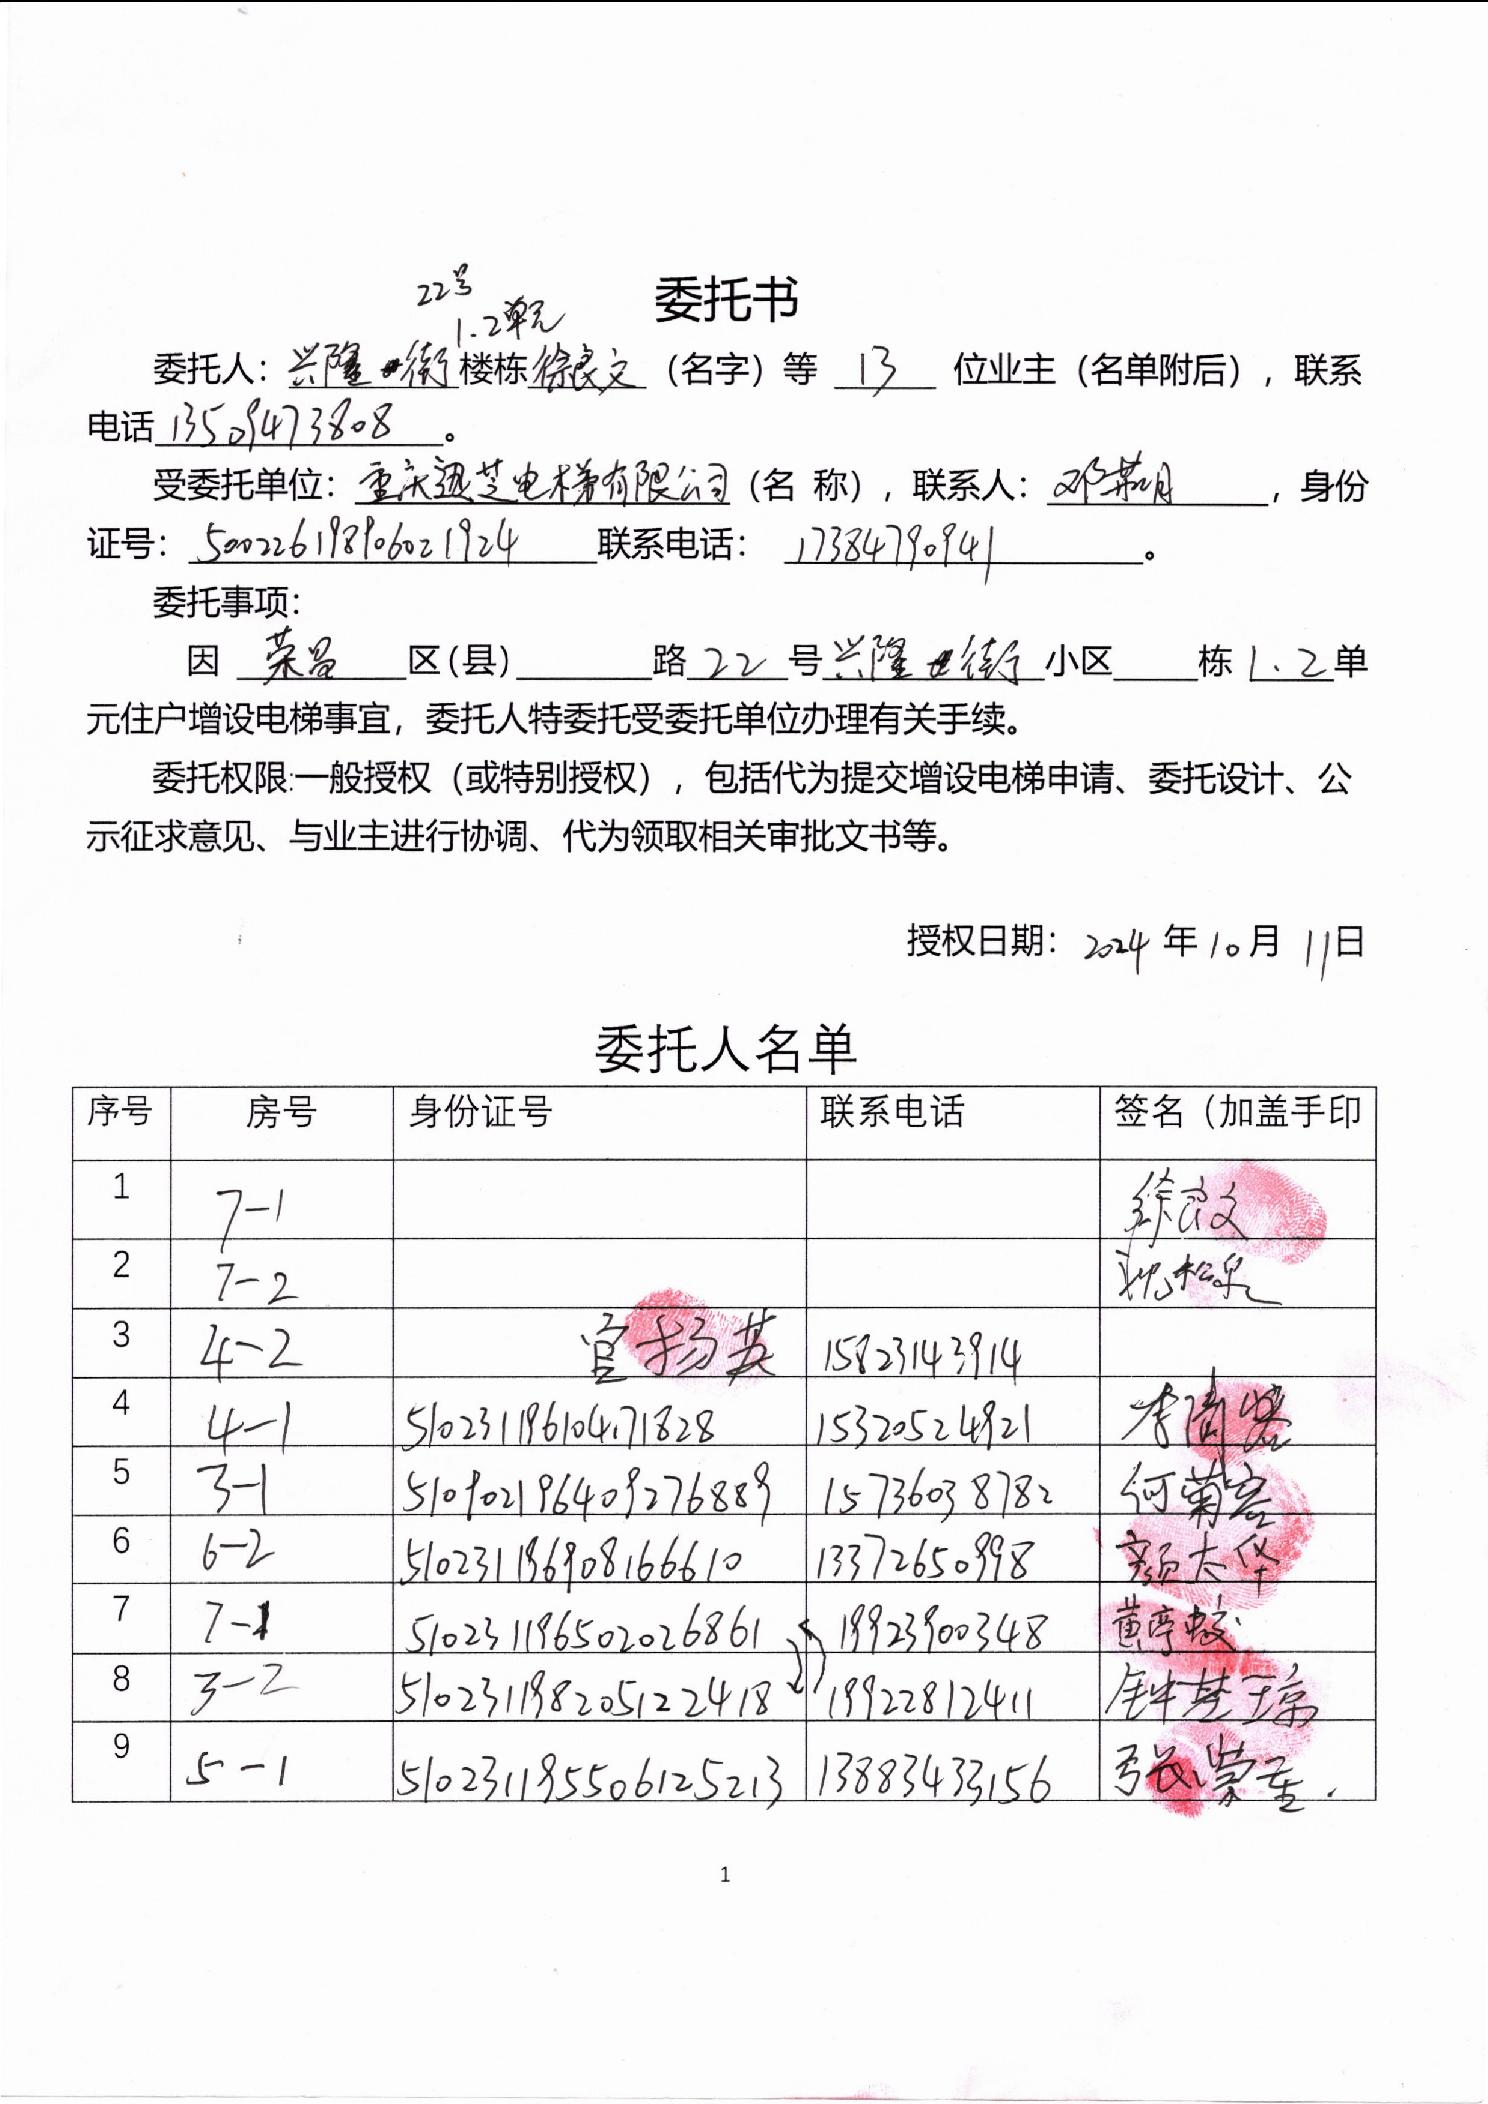 委托书
22号
1.2单元
委托人：兴隆街楼栋徐良文（名字）等 13 位业主（名单附后），联系
电话13509473808。
受委托单位：重庆迅芝电梯有限公司（名 称），联系人：邓荣明，身份
证号：500226198906021924 联系电话：17384790941。
委托事项：
因 荣昌 区(县) 路22号兴隆街小区 栋1.2单
元住户增设电梯事宜，委托人特委托受委托单位办理有关手续。
委托权限:一般授权（或特别授权），包括代为提交增设电梯申请、委托设计、公
示征求意见、与业主进行协调、代为领取相关审批文书等。
授权日期：2024年10月11日
委托人名单
序号 房号 身份证号 联系电话 签名（加盖手印
1 7-1 徐良文
2 7-2
3 4-2 官扬英 15823143914
4 4-1 510231196104171828 15320524921 李清蓉
5 3-1 510902196409276889 15736038782 何菊容
6 6-2 510231196908166610 13372650998 颜太华
7 7-1 510231196502026861 19923900348
8 3-2 510231198205122418 19922812411 钟基琼
9 5-1 510231195506125213 13883433156 张荣重
1